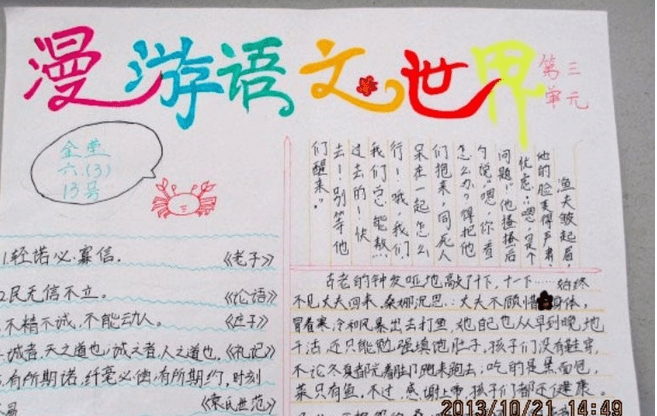 漫游语文世界
第三
单元
金堂
六.(3)
13号
1.轻诺必寡信. 《老子》
2.民无信不立. 《论语》
不精不诚,不能动人. 《庄子》
诚者,天之道也;诚之者,人之道也. 《礼记》
有所期诺,纤毫必偿;有所期约,时刻
《袁氏世范》
渔夫皱起眉,
他的脸变得严肃,
忧虑."嗯,是个
问题!"他搔搔后
勺说:"嗯,你看
怎么办?得把他
们抱来,同死人
呆在一起怎么
行!哦,我们,
我们总能熬
过去的!快
去!别等他
们醒来."
古老的钟发哑地敲了十下,十一下……始终
不见丈夫回来.桑娜沉思:丈夫不顾惜身体,
冒着寒冷和风暴出去打鱼,她自己也从早到晚地
干活,还只能勉强填饱肚子.孩子们没有鞋穿,
不论冬夏都光着脚跑来跑去;吃的是黑面包,
菜只有鱼.不过,感谢上帝,孩子们都还健康.
2013/10/21 14:49